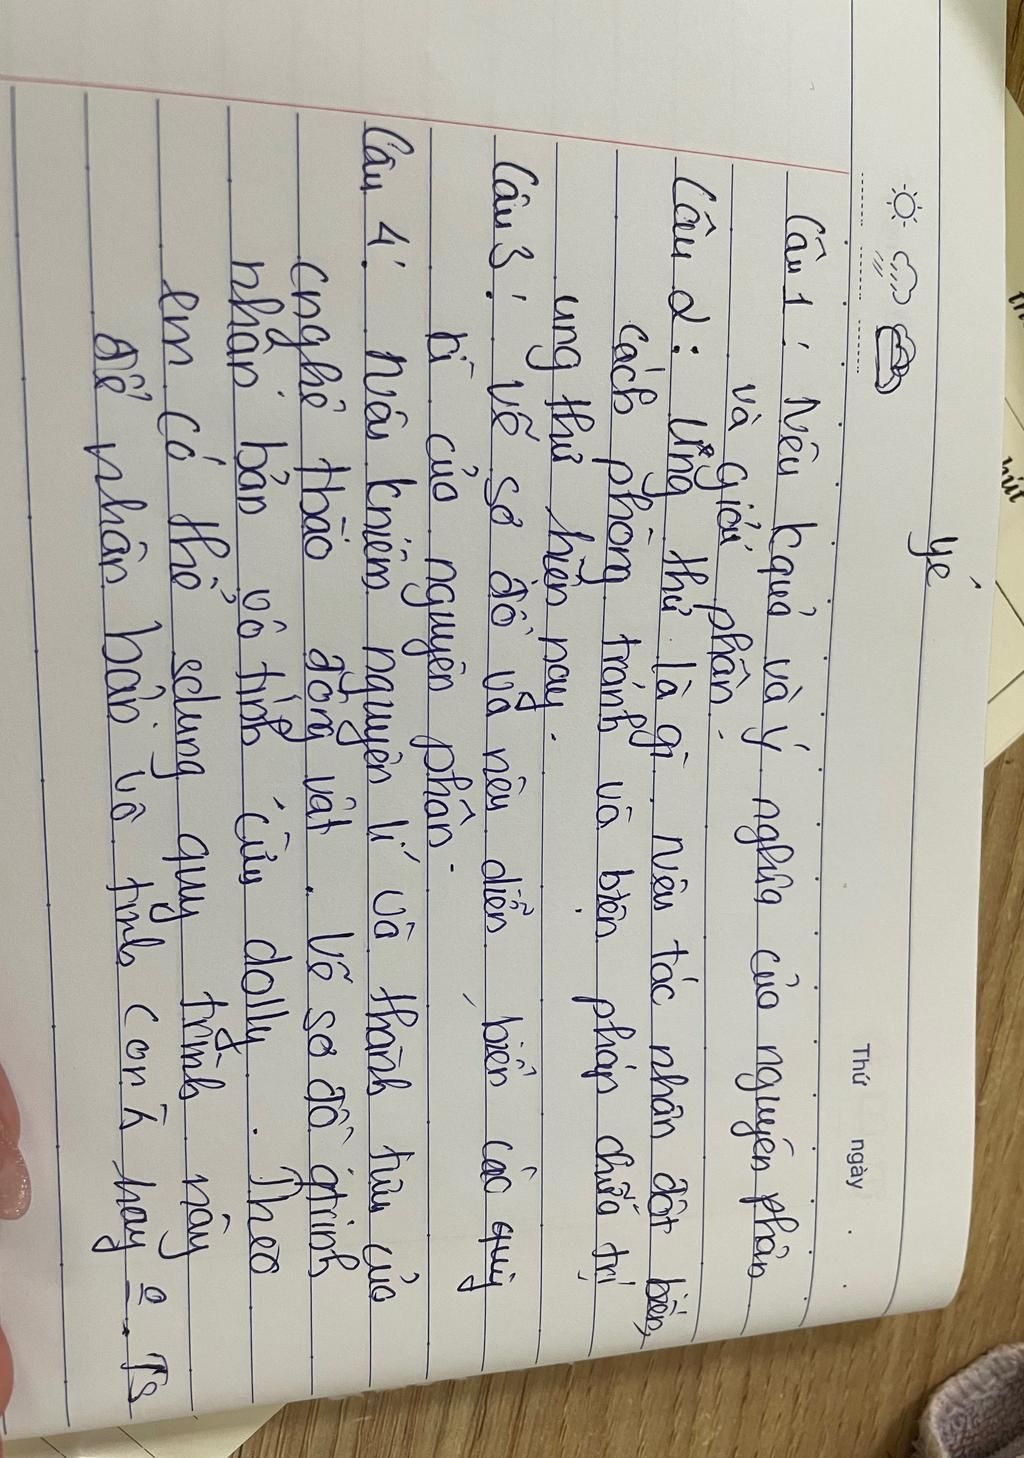 yé
Thứ ngày
Câu 1: Nêu kquả và ý nghĩa của nguyên phân
và giảm phân.
Câu 2: Ung thư là gì. Nêu tác nhân đột biến,
cách phòng tránh và biện pháp chữa trị
ung thư hiện nay.
Câu 3: Vẽ sơ đồ và nêu diễn biến các quý
kì của nguyên phân.
Câu 4: Nêu kniệm nguyên lí và thành tựu của
cnghệ tbào động vật. Vẽ sơ đồ qtrình
nhân bản vô tính cừu dolly. Theo
em có thể sdụng quy trình này
để nhân bản vô tính con ng hay o. Ts